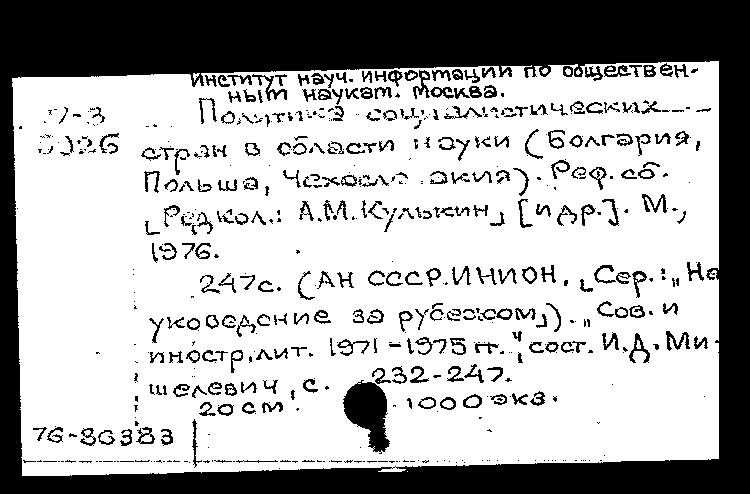 Институт науч. информации по обществен-
ным наукам. Москва.
Политика социалистических
стран в области науки (Болгария,
Польша, Чехосло акия). Реф. сб.
[Редкол.: А.М. Кулькин] [и др.]. М.,
1976.
247с. (АН СССР. ИНИОН. [Сер.: „На
уковедение за рубежом]). „Сов. и
иностр. лит. 1971-1975 гг.", сост. И.Д. Ми-
шелевич, с. 232-247.
20 см. 1000 экз.
76-86383